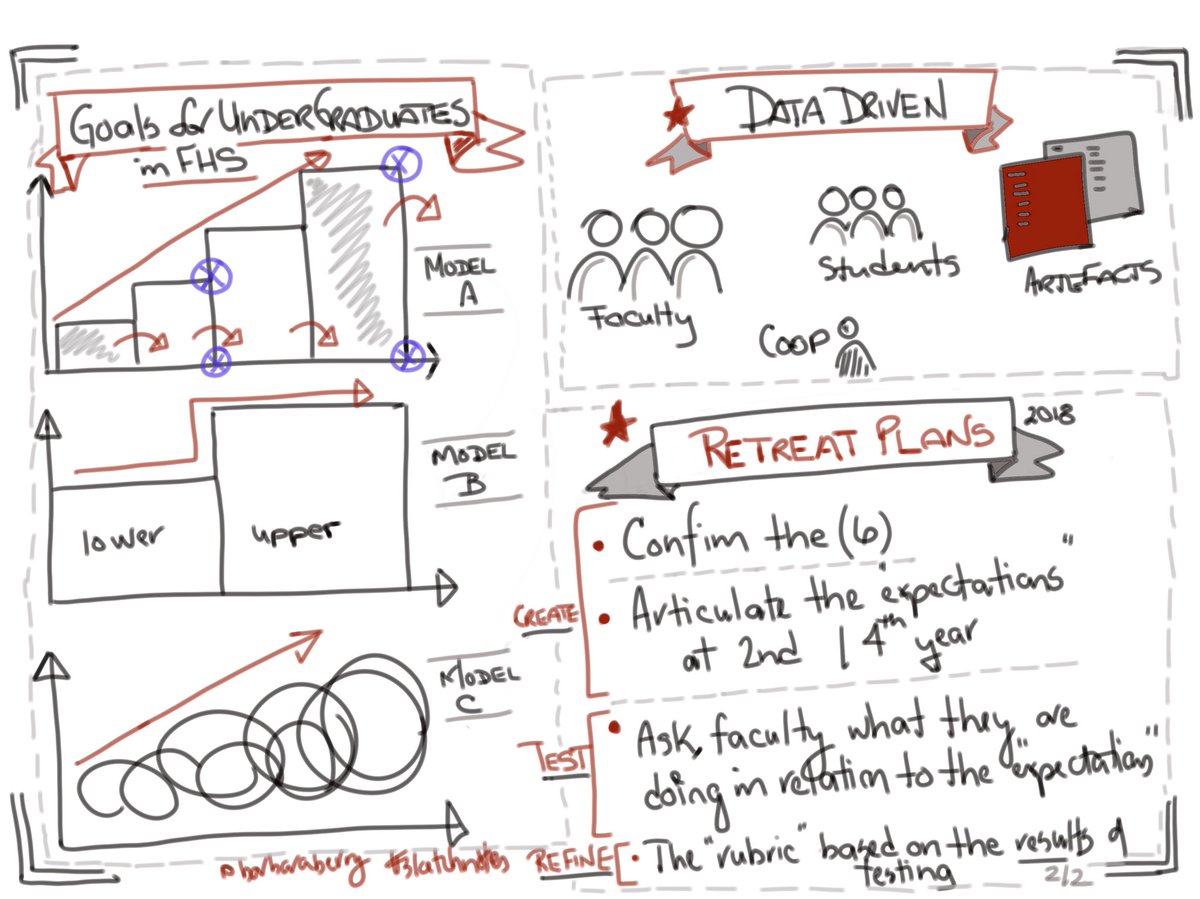 Goals for UNDERGRADUATES
in FHS
MODEL
A
MODEL
B
lower
upper
MODEL
C
DATA DRIVEN
Faculty
Students
ARTEFACTS
COOP
RETREAT PLANS
2018
CREATE
• Confim the (6)
• Articulate the "expectations"
at 2nd | 4th year
TEST
• Ask, faculty what they are
doing in relation to the "expectations"
REFINE
• The "rubric" based on the results of
testing
2/2
@barbaraberry